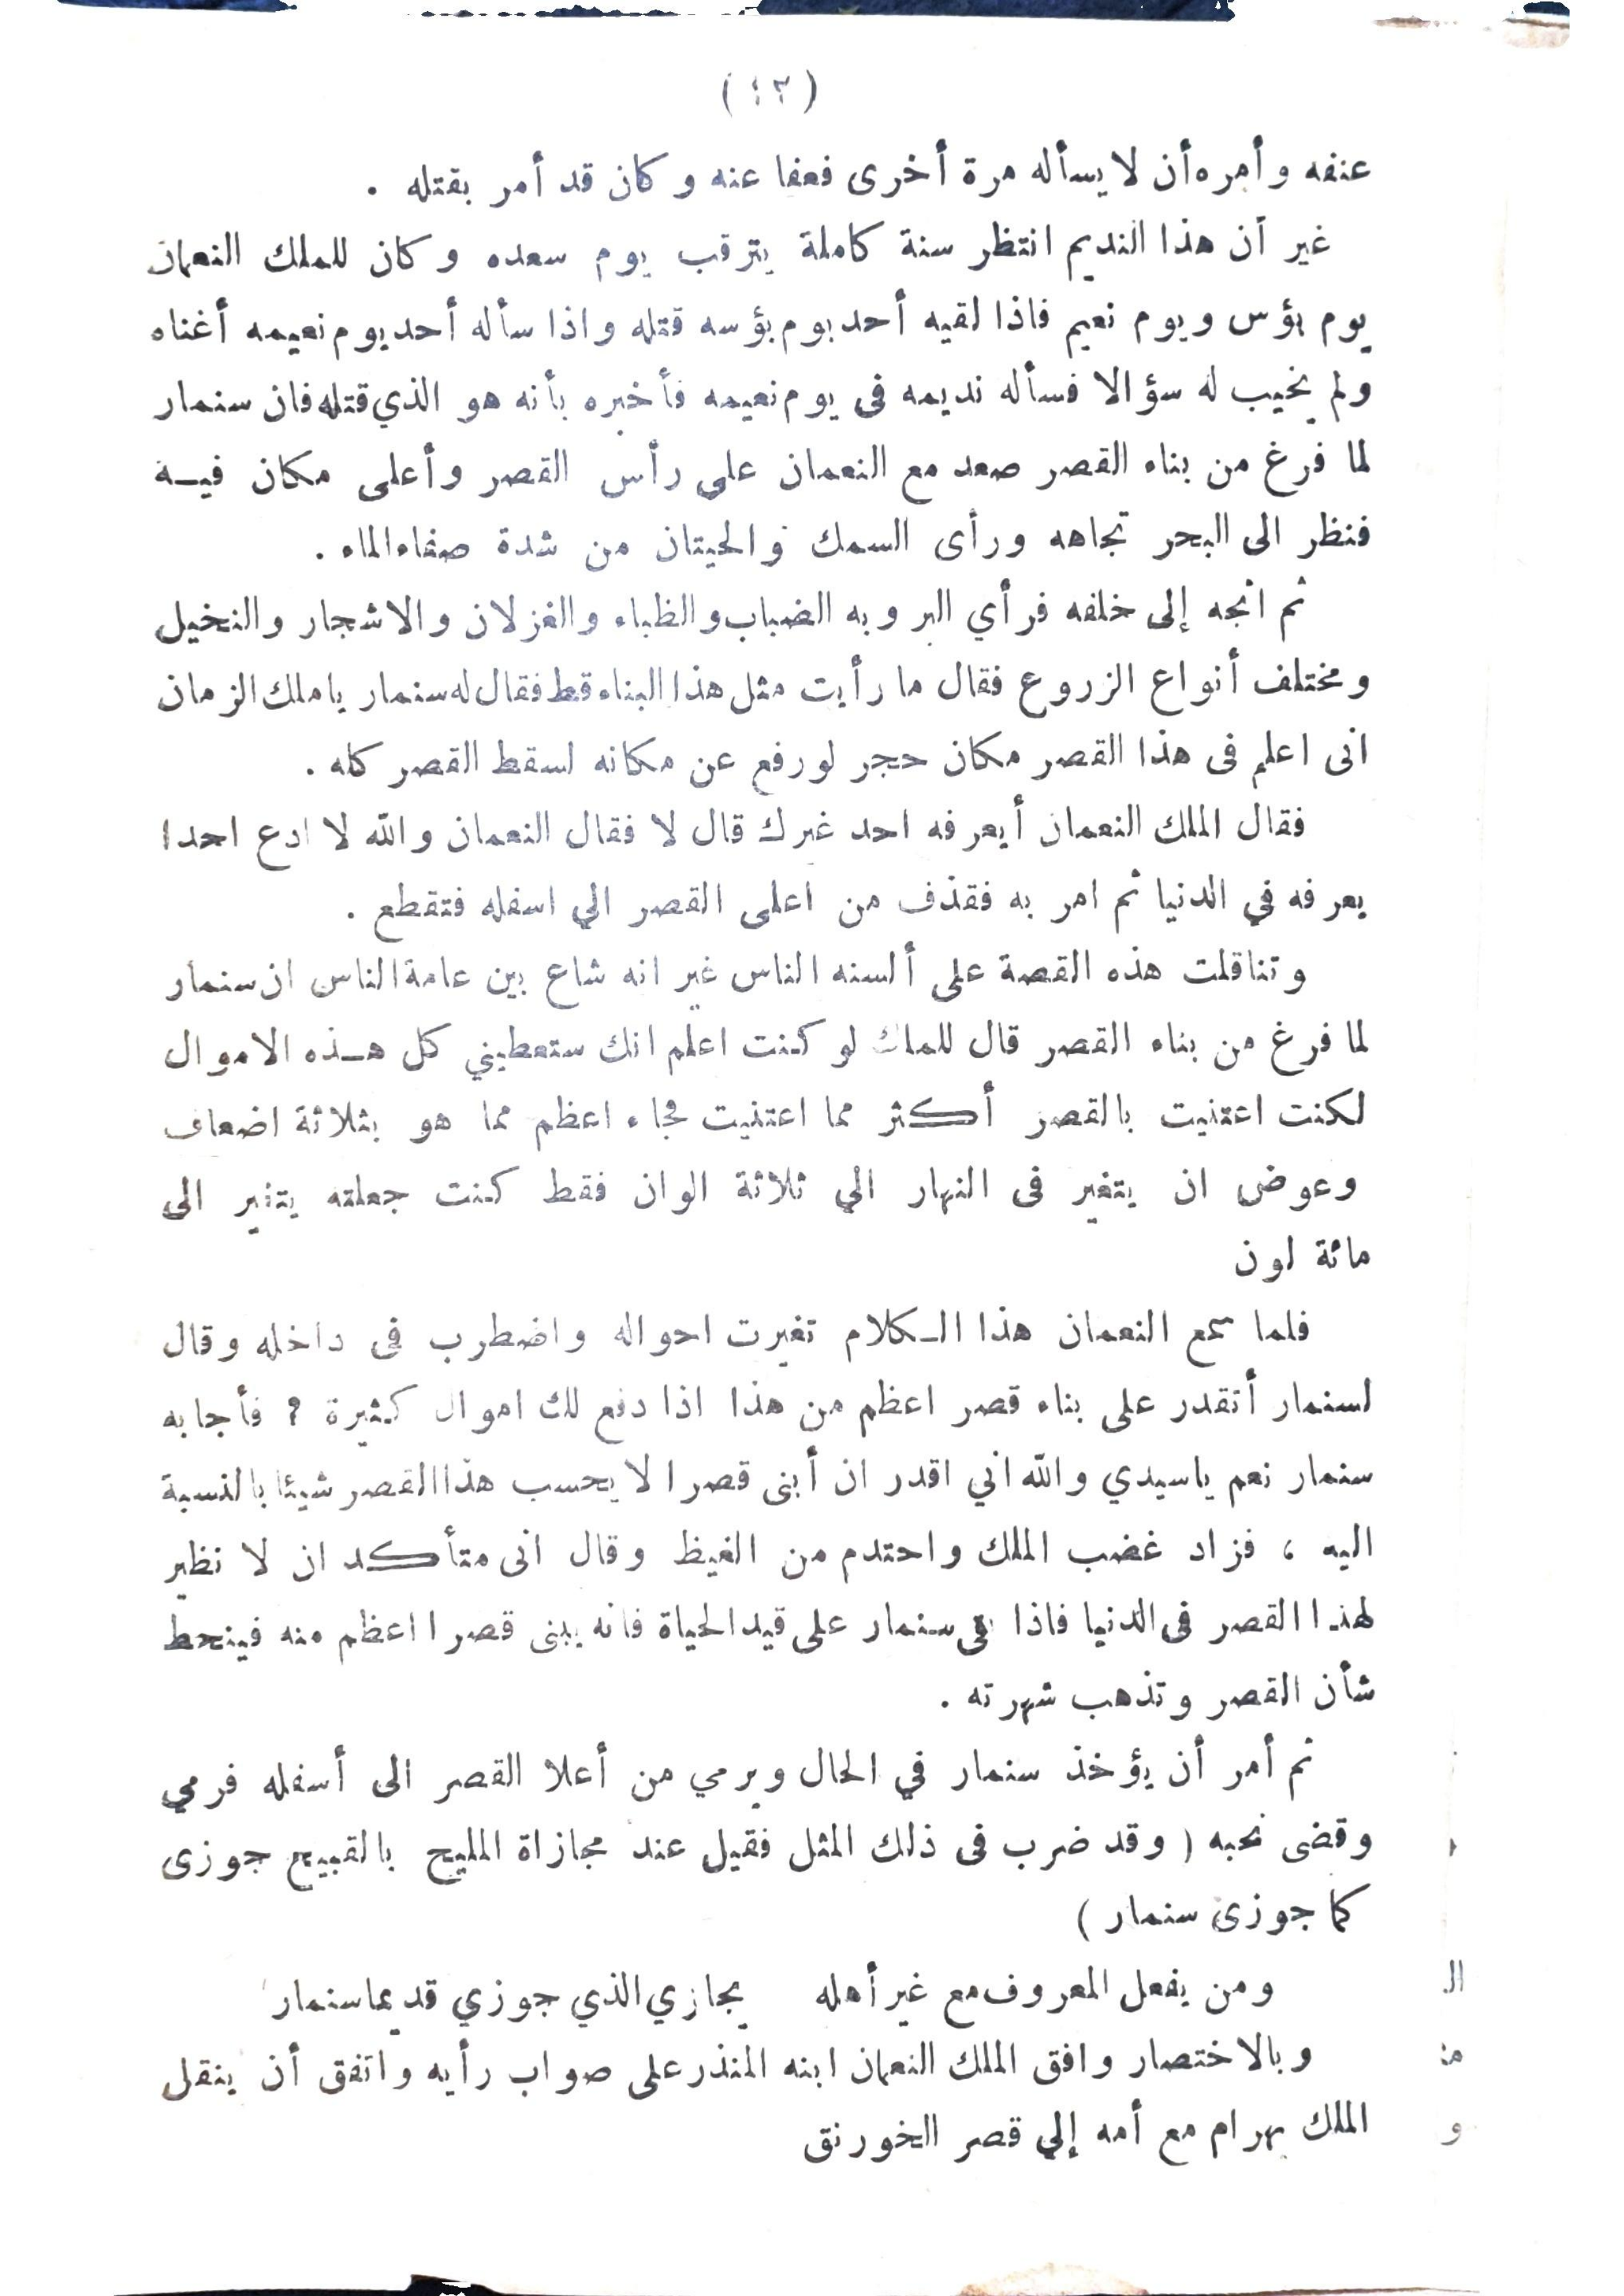 (٤٣)
عنفه وأمره أن لا يسأله مرة أخرى فعفا عنه وكان قد أمر بقتله .
غير أن هذا النديم انتظر سنة كاملة يترقب يوم سعده وكان للملك النعمان
يوم بؤس ويوم نعيم فاذا لقيه أحد يوم بؤسه قتله واذا سأله أحد يوم نعيمه أغناه
ولم يخيب له سؤالا فسأله نديمه فى يوم نعيمه فأخبره بأنه هو الذي قتله فان سنمار
لما فرغ من بناء القصر صعد مع النعمان على رأس القصر وأعلى مكان فيــة
فنظر الى البحر تجاهه ورأى السمك والحيتان من شدة صفاء الماء .
ثم اتجه إلى خلفه فرأي البر وبه الضباب والظباء والغزلان والاشجار والنخيل
ومختلف أنواع الزروع فقال ما رأيت مثل هذا البناء قط فقال له سنمار يا ملك الزمان
انى اعلم فى هذا القصر مكان حجر لو رفع عن مكانه لسقط القصر كله .
فقال الملك النعمان أيعرفه احد غيرك قال لا فقال النعمان والله لا ادع احدا
يعرفه في الدنيا ثم امر به فقذف من اعلى القصر الي اسفله فتقطع .
وتناقلت هذه القصة على ألسنه الناس غير انه شاع بين عامة الناس ان سنمار
لما فرغ من بناء القصر قال للملك لو كنت اعلم انك ستعطيني كل هــذه الاموال
لكنت اعتنيت بالقصر أكثر مما اعتنيت فجاء اعظم مما هو بثلاثة اضعاف
وعوض ان يتغير فى النهار الي ثلاثة الوان فقط كنت جعلته يتغير الى
مائة لون
فلما سمع النعمان هذا الـكلام تغيرت احواله واضطرب فى داخله وقال
لسنمار أتقدر على بناء قصر اعظم من هذا اذا دفع لك اموال كثيرة ؟ فأجابه
سنمار نعم يا سيدي والله اني اقدر ان أبنى قصرا لا يحسب هذا القصر شيئا بالنسبة
اليه ، فزاد غضب الملك واحتدم من الغيظ وقال انى متأكد ان لا نظير
لهذا القصر فى الدنيا فاذا بقى سنمار على قيد الحياة فانه يبنى قصرا اعظم منه فينحط
شأن القصر وتذهب شهرته .
ثم أمر أن يؤخذ سنمار في الحال ويرمي من أعلا القصر الى أسفله فرمي
وقضى نحبه ( وقد ضرب فى ذلك المثل فقيل عند مجازاة المليح بالقبيح جوزى
كما جوزى سنمار )
ومن يفعل المعروف مع غير أهله يجازي الذي جوزي قديما سنمار
وبالاختصار وافق الملك النعمان ابنه المنذر على صواب رأيه واتفق أن ينقل
الملك بهرام مع أمه إلي قصر الخورنق